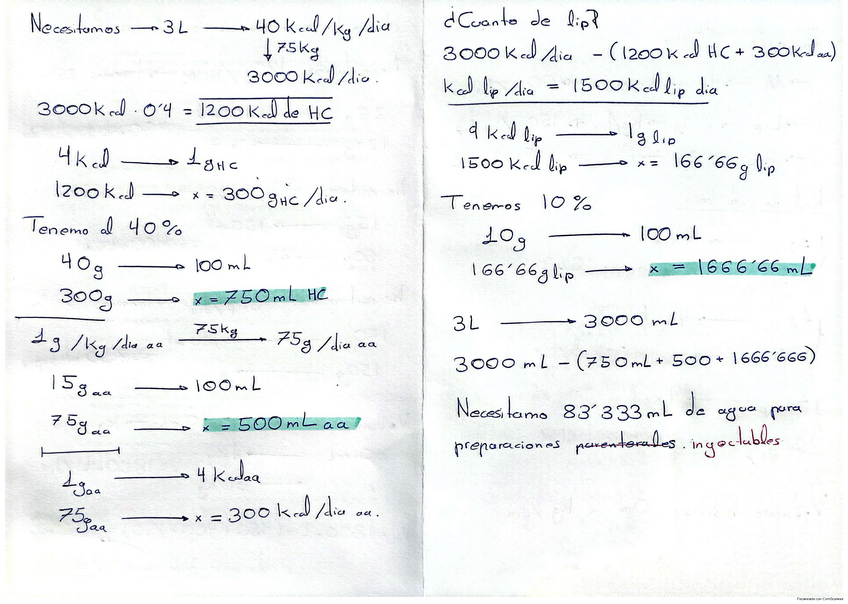 Necesitamos → 3L → 40 Kcal/Kg/dia
↓ 75kg
3000 Kcal/dia.
3000Kcal · 0'4 = 1200 Kcal de HC
4 Kcal → 1g HC
1200 Kcal → x = 300 g HC/dia.
Tenemo al 40%
40g → 100 mL
300g → x = 750 mL HC
1g/Kg/dia aa 75Kg → 75g/dia aa
15g aa → 100mL
75g aa → x = 500 mL aa
1g aa → 4 Kcal aa
75g aa → x = 300 Kcal/dia aa.
¿Cuanto de lip?
3000 Kcal/dia - (1200 Kcal HC + 300 Kcal aa)
Kcal lip/dia = 1500 Kcal lip dia
9 Kcal lip → 1g lip
1500 Kcal lip → x = 166'66g lip
Tenemos 10%
10g → 100 mL
166'66g lip → x = 1666'66 mL
3L → 3000 mL
3000 mL - (750mL + 500 + 1666'666)
Necesitamo 83'333 mL de agua para
preparaciones parenterales. inyectables
Escaneado con CamScanner